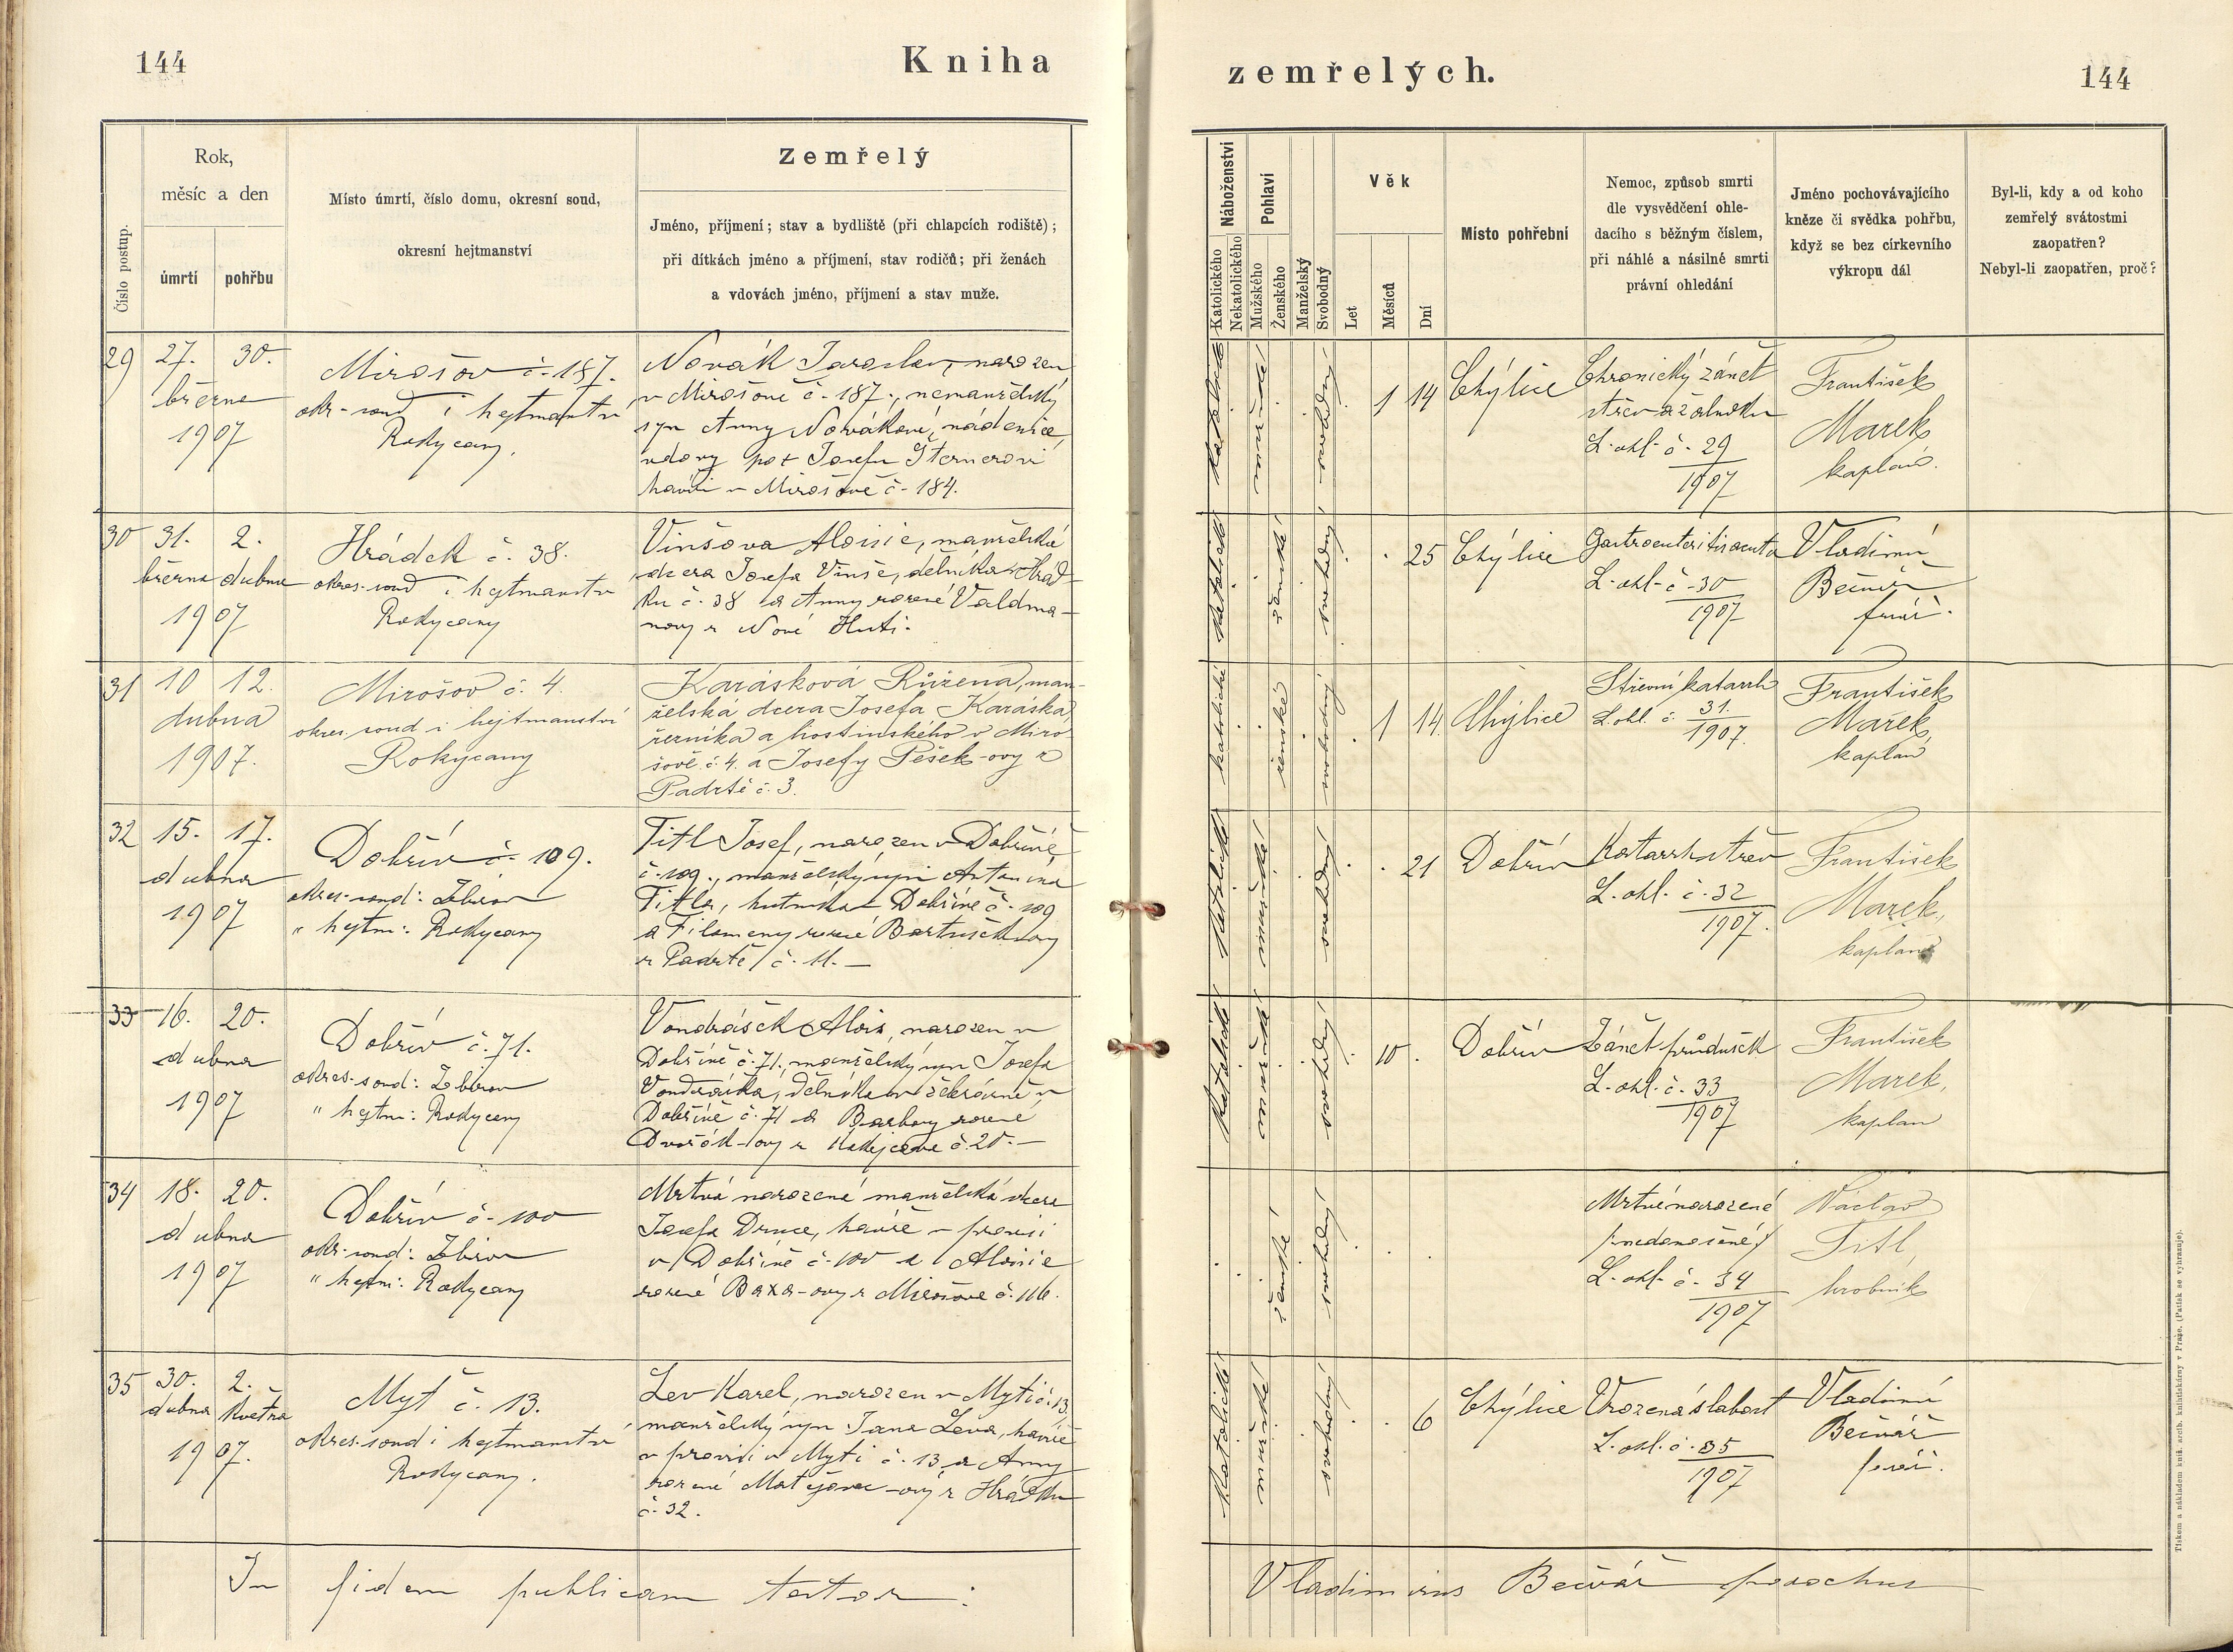 144
Kniha
zemřelých.
144
Číslo postup.
Rok,
měsíc a den
úmrtí
pohřbu
Místo úmrtí, číslo domu, okresní soud,
okresní hejtmanství
Zemřelý
Jméno, příjmení; stav a bydliště (při chlapcích rodiště);
při dítkách jméno a příjmení, stav rodičů; při ženách
a vdovách jméno, příjmení a stav muže.
Náboženství
Katolického
Nekatolického
Pohlaví
Mužského
Ženského
Manželský
Svobodný
Věk
Let
Měsíců
Dní
Místo pohřební
Nemoc, způsob smrti
dle vysvědčení ohle-
dacího s běžným číslem,
při náhlé a násilné smrti
právní ohledání
Jméno pochovávajícího
kněze či svědka pohřbu,
když se bez církevního
výkropu dál
Byl-li, kdy a od koho
zemřelý svátostmi
zaopatřen?
Nebyl-li zaopatřen, proč?
29
27. 30.
března
1907
Mirošov č. 187.
okr. soud i hejtmanství
Rokycany.
Novák Jaroslav, narozen
v Mirošově č. 187., nemanželský
syn Anny Novákové, nádenice,
vdovy po Josefu Šternerovi
havíři v Mirošově č. 184.
katolické
mužské
svobodný
1 14
Chýlice
Chronický zánět
střev a žaludku
L. ohl. č. 29
1907
František
Marek
kaplan.
30
31. 2.
března dubna
1907
Hrádek č. 38.
okres. soud i hejtmanství
Rokycany
Vinšova Aloisie, manželská
dcera Josefa Vinše, dělníka v Hrád-
ku č. 38 a Anny rozené Valdma-
novy z Nové Huti.
katolické
ženské
svobodný
25
Chýlice
Gastroenteritis acuta
L. ohl. č. 30
1907
Vladimír
Bečvář
farář.
31
10 12.
dubna
1907.
Mirošov č. 4.
okres. soud i hejtmanství
Rokycany
Karásková Růžena, man-
želská dcera Josefa Karáska,
řezníka a hostinského v Miro-
šově č. 4. a Josefy Pešek-ovy z
Padrtě č. 3.
katolické
ženské
svobodný
1 14
Chýlice
Střevní katarrh
L. ohl. č. 31.
1907.
František
Marek,
kaplan
32
15. 17.
dubna
1907
Dobřív č. 109.
okres. soud: Zbirov
" hejtm: Rokycany
Titl Josef, narozen v Dobřívě
č. 109., manželský syn Antonína
Titla, hutníka v Dobřívě č. 109
a Filomeny rozené Bartuškovy
z Padrtě č. 11. —
katolické
mužské
svobodný
21
Dobřív
Katarrh střev
L. ohl. č. 32
1907.
František
Marek,
kaplan
33
16. 20.
dubna
1907
Dobřív č. 71.
okres. soud: Zbirov
" hejtm: Rokycany
Vondrášek Alois, narozen v
Dobřívě č. 71., manželský syn Josefa
Vondráška, dělníka v železárně v
Dobřívě č. 71 a Barbory rozené
Dvořák-ovy z Kakejcova č. 20. —
katolické
mužské
svobodný
10
Dobřív
Zánět průdušek
L. ohl. č. 33
1907
František
Marek,
kaplan
34
18. 20.
dubna
1907
Dobřív č. 100
okr. soud: Zbirov
" hejtm: Rokycany
Mrtvá narozená manželská dcera
Josefa Drnce, havíře v provisi
v Dobřívě č. 100 a Aloisie
rozené Baxa-ovy z Mirošova č. 116.
ženské
svobodný
Mrtvě narozené
(nedonošené)
L. ohl. č. 34
1907
Václav
Titl,
hrobník
35
30. 2.
dubna května
1907.
Mýt č. 13.
okres. soud i hejtmanství
Rokycany.
Lev Karel, narozen v Mýtě č. 13,
manželský syn Jana Leva, havíře
v provisi v Mýti č. 13 a Anny
rozené Matějovec-ovy z Hrádku
č. 32.
katolické
mužské
svobodný
6
Chýlice
Vrozená slabost
L. ohl. č. 35
1907
Vladimír
Bečvář
farář.
In fidem publicam testor:
Vladimirus Bečvář parochus
Tiskem a nákladem kníž. arcib. knihtiskárny v Praze. (Patisk se vyhrazuje).